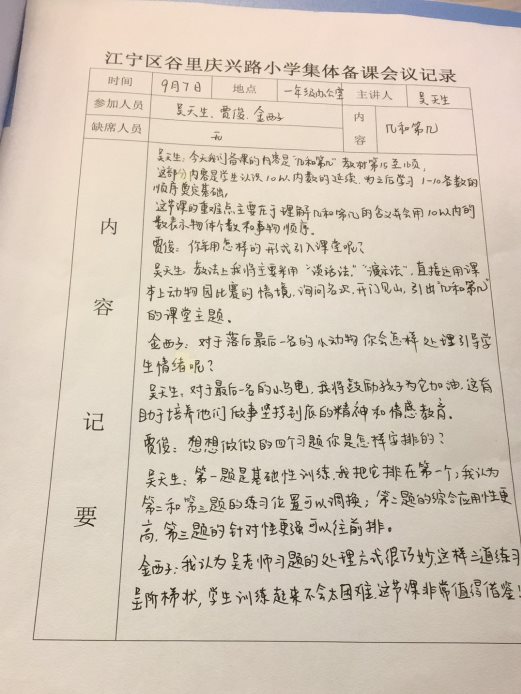 江宁区谷里庆兴路小学集体备课会议记录
时间 9月7日 地点 一年级办公室 主讲人 吴天生
参加人员 吴天生、贾俊、金西子 内容 几和第几
缺席人员 无
内容记要
吴天生:今天我们备课的内容是“几和第几”教材第15至16页,
这部份内容是学生认识10以内数的延续,为之后学习1-10各数的
顺序奠定基础,
这节课的重难点主要在于理解几和第几的含义点会用10以内的
数表示物体个数和事物顺序。
贾俊:你采用怎样的形式引入课堂呢?
吴天生:教法上我将主要采用“谈话法”“演示法”,直接运用课
本上动物园比赛的情境,询问名次,开门见山,引出“几和第几”
的课堂主题。
金西子:对于落后最后一名的小动物你会怎样处理引导学
生情绪呢?
吴天生:对于最后一名的小乌龟,我将鼓励孩子为它加油,这有
助于培养他们做事坚持到底的精神和情感教育。
贾俊:想想做做的四个习题你是怎样安排的?
吴天生:第一题是基础性训练,我把它排在第一个,我认为
第二和第三题的练习位置可以调换;第二题的综合应用性更
高,第三题的针对性更强可以往前排。
金西子:我认为吴老师习题的处理方式很巧妙,这样三道练习
呈阶梯状,学生训练起来不会太困难.这节课非常值得借鉴!